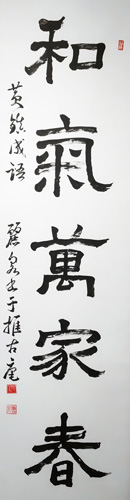 和氣萬家春
黃鎮成語
麗泉書于推古庵